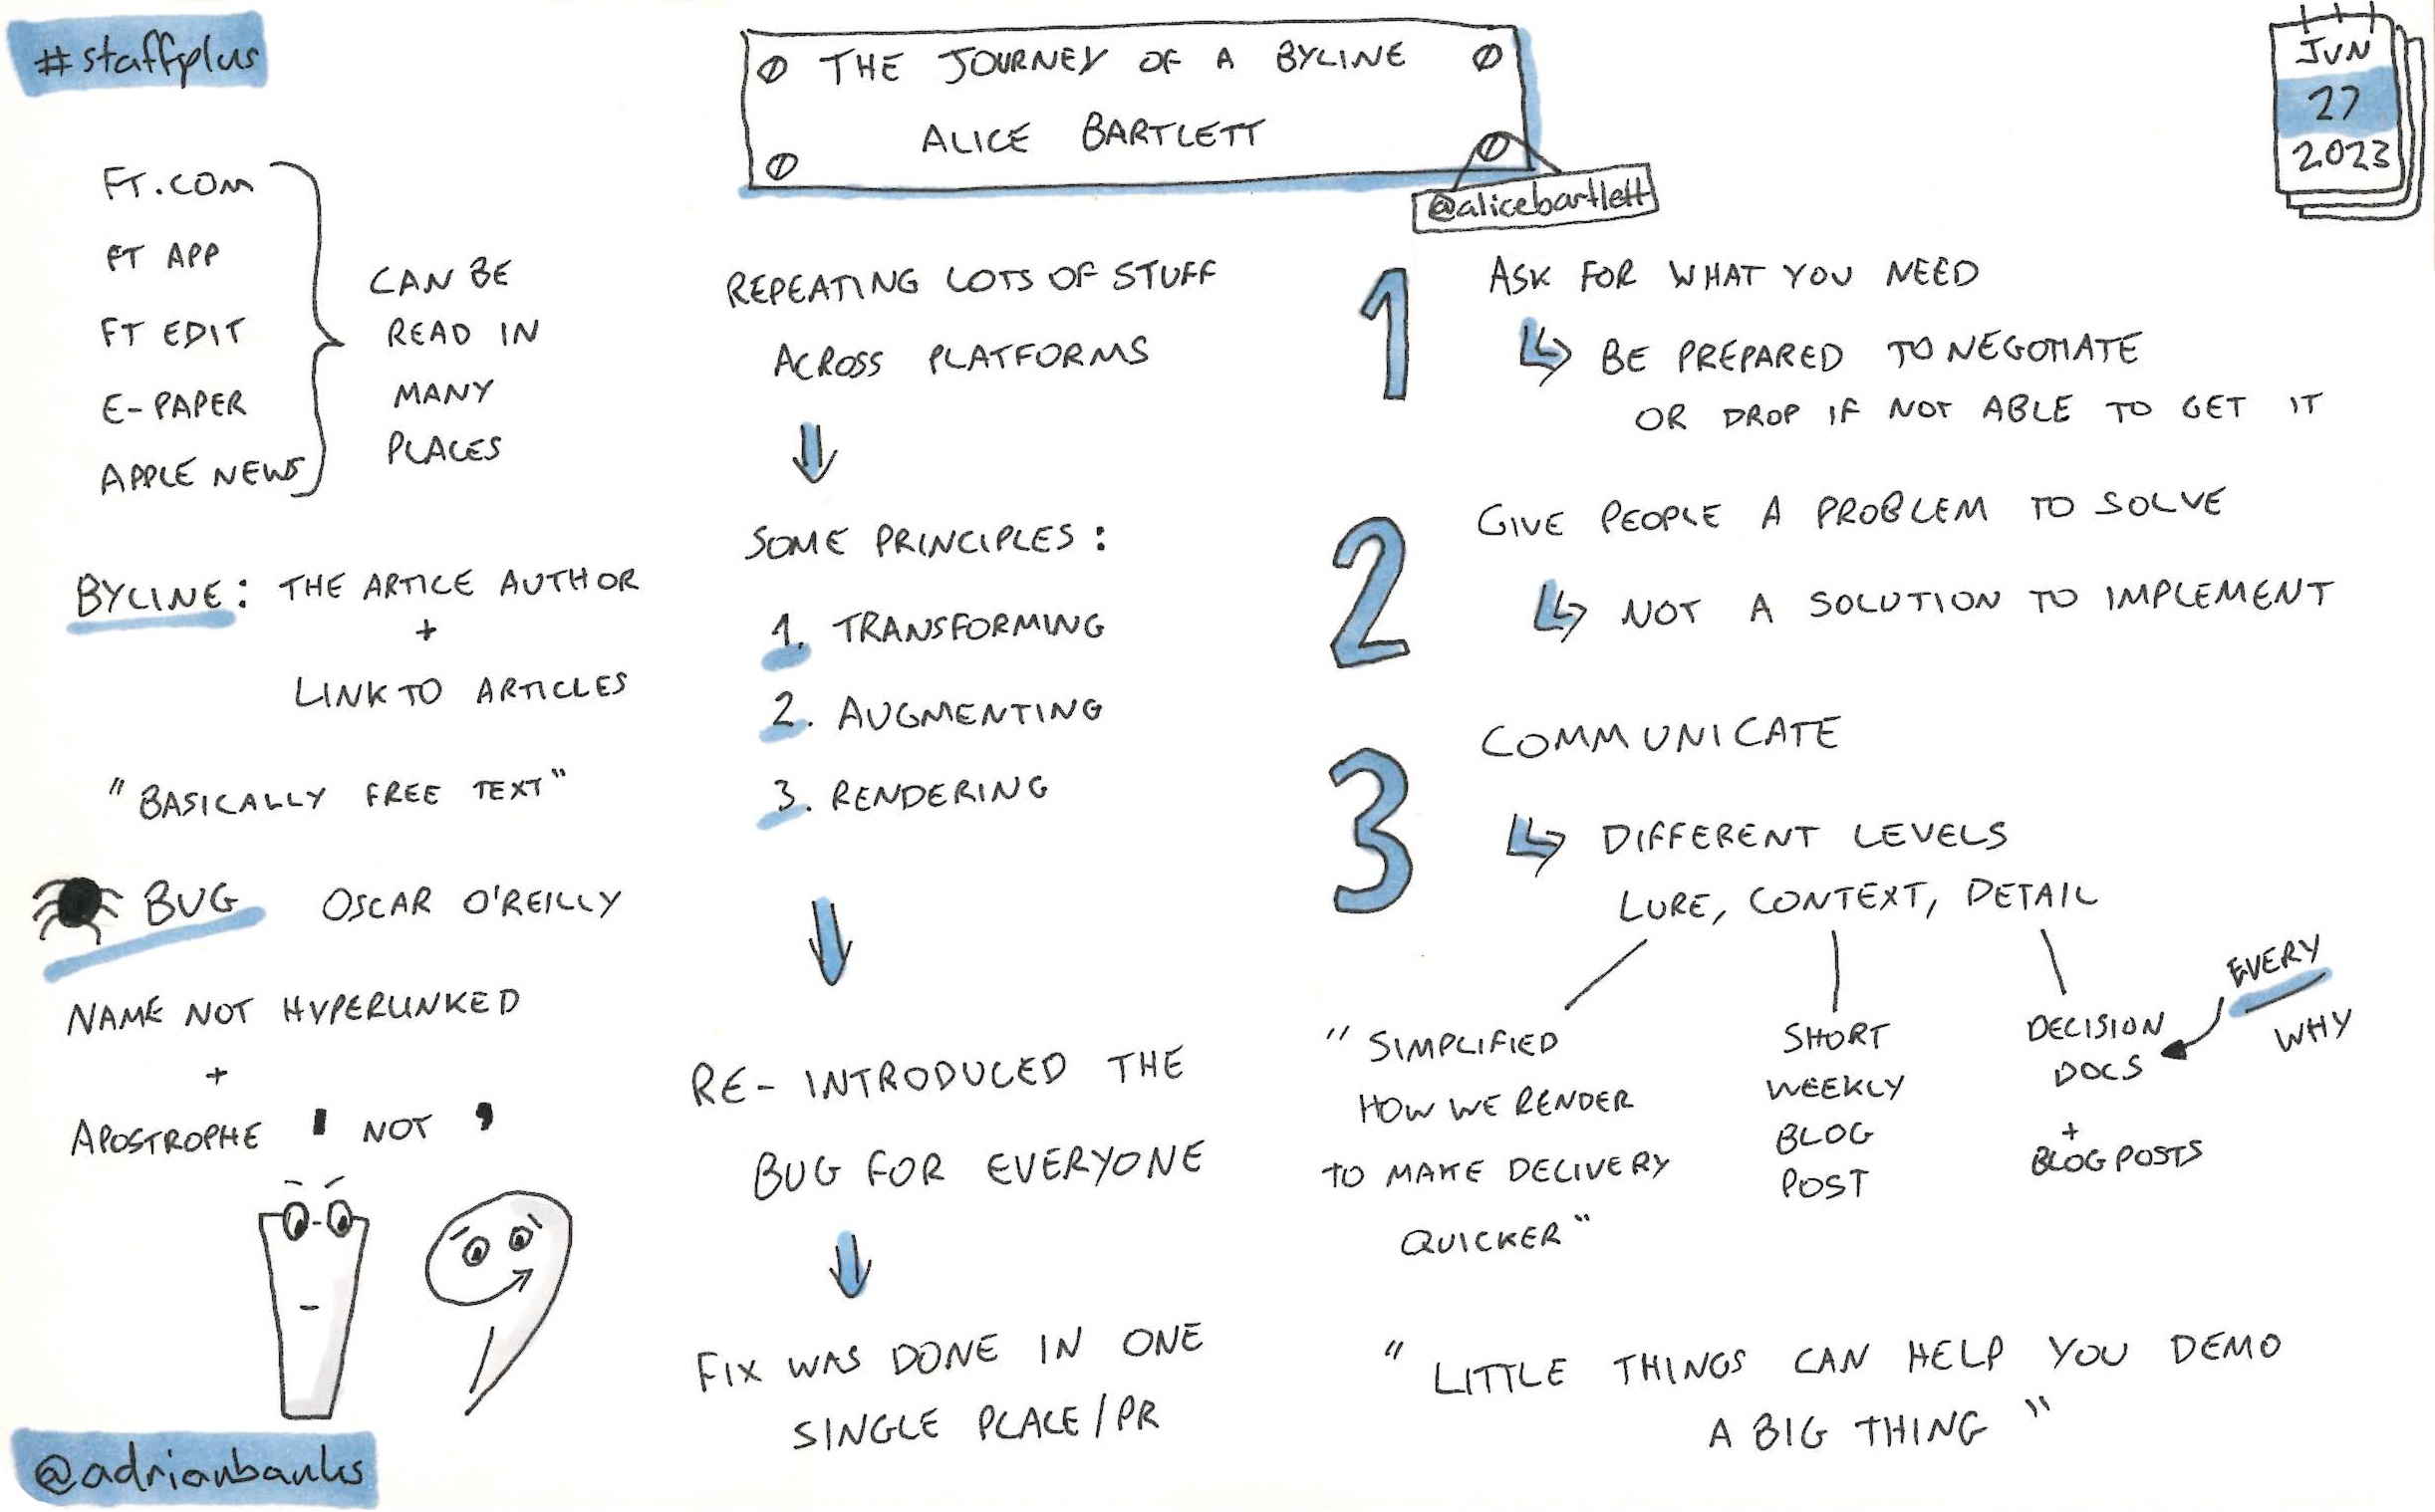 #staffplus
THE JOURNEY OF A BYLINE
ALICE BARTLETT
@alicebartlett
JUN
27
2023
FT.COM
FT APP
FT EDIT
E-PAPER
APPLE NEWS
CAN BE
READ IN
MANY
PLACES
BYLINE: THE ARTICE AUTHOR
+
LINK TO ARTICLES
"BASICALLY FREE TEXT"
BUG OSCAR O'REILLY
NAME NOT HYPERLINKED
+
APOSTROPHE ' NOT ’
@adrianbanks
REPEATING LOTS OF STUFF
ACROSS PLATFORMS
SOME PRINCIPLES:
1. TRANSFORMING
2. AUGMENTING
3. RENDERING
RE-INTRODUCED THE
BUG FOR EVERYONE
FIX WAS DONE IN ONE
SINGLE PLACE/PR
1 ASK FOR WHAT YOU NEED
BE PREPARED TO NEGOTIATE
OR DROP IF NOT ABLE TO GET IT
2 GIVE PEOPLE A PROBLEM TO SOLVE
NOT A SOLUTION TO IMPLEMENT
3 COMMUNICATE
DIFFERENT LEVELS
LURE, CONTEXT, DETAIL
"SIMPLIFIED
HOW WE RENDER
TO MAKE DELIVERY
QUICKER"
SHORT
WEEKLY
BLOG
POST
DECISION
DOCS
+
BLOG POSTS
EVERY
WHY
"LITTLE THINGS CAN HELP YOU DEMO
A BIG THING"